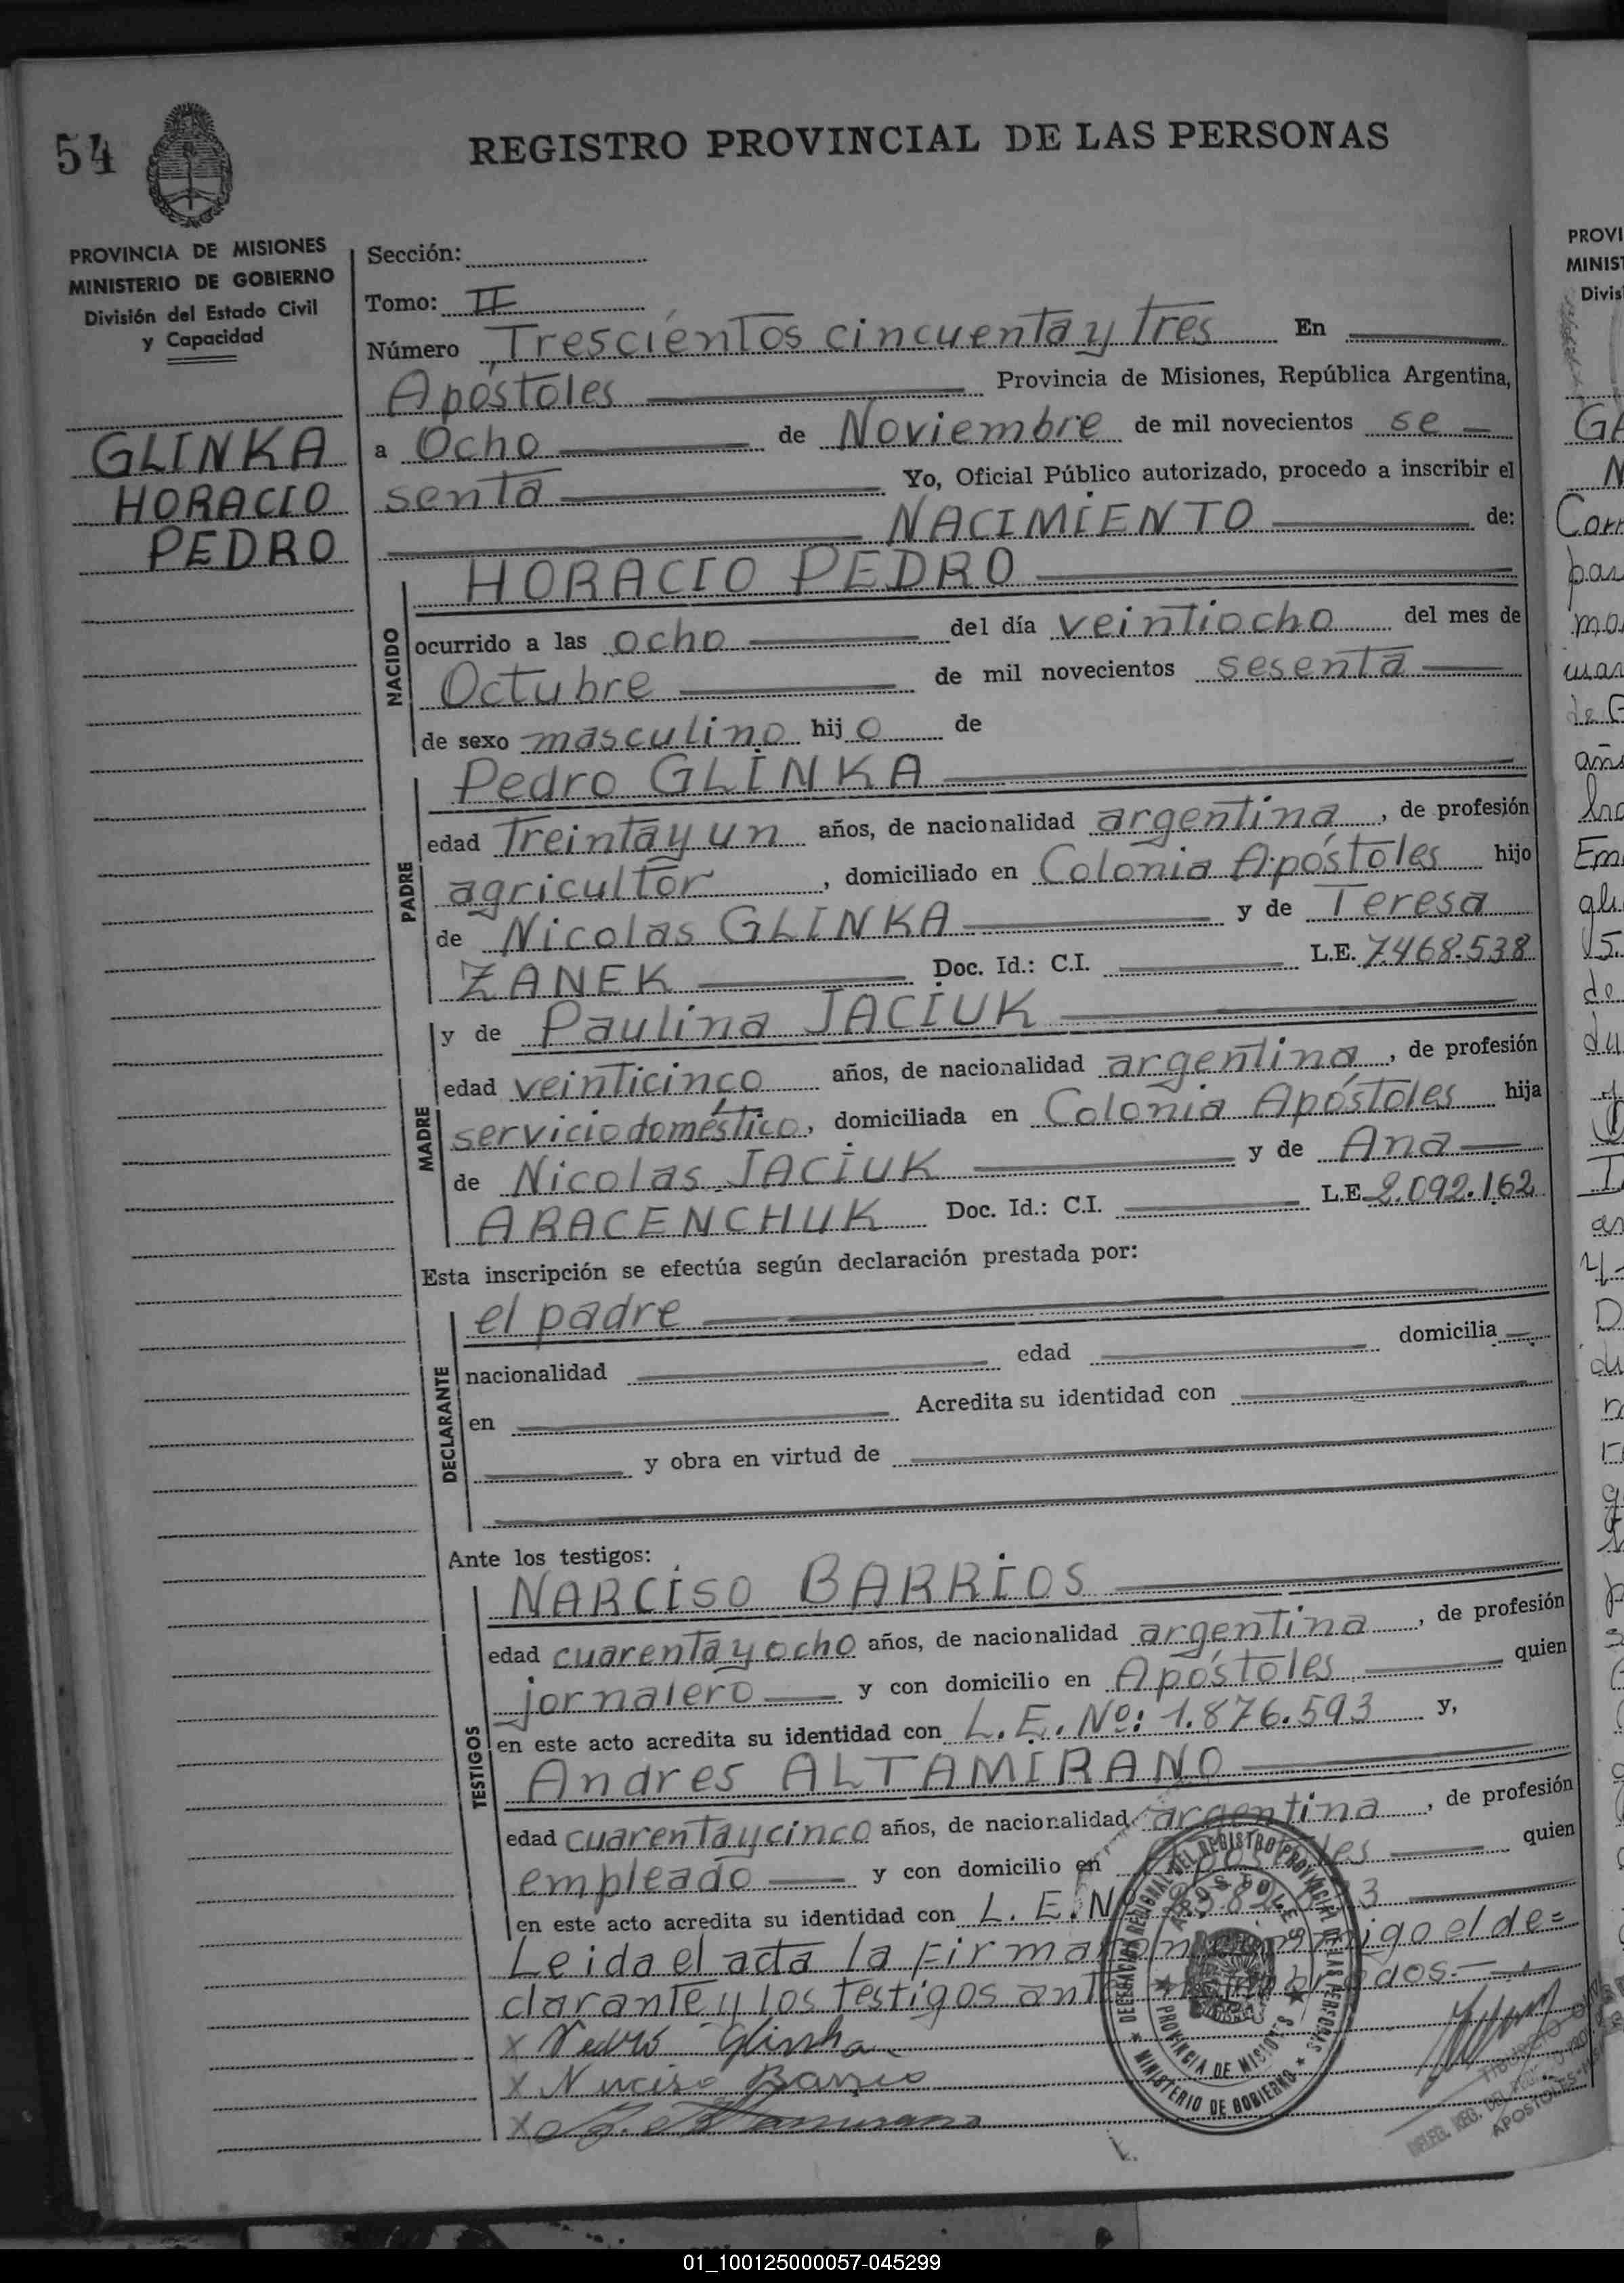 54
REGISTRO PROVINCIAL DE LAS PERSONAS
PROVINCIA DE MISIONES
MINISTERIO DE GOBIERNO
División del Estado Civil
y Capacidad
GLINKA
HORACIO
PEDRO
Sección:
Tomo: II
Número Trescientos cincuenta y tres En
Apóstoles Provincia de Misiones, República Argentina,
a Ocho de Noviembre de mil novecientos se-
senta Yo, Oficial Público autorizado, procedo a inscribir el
NACIMIENTO de:
NACIDO
HORACIO PEDRO
ocurrido a las ocho del día veintiocho del mes de
Octubre de mil novecientos sesenta
de sexo masculino hijo de
PADRE
Pedro GLINKA
edad Treinta y un años, de nacionalidad argentina, de profesión
agricultor, domiciliado en Colonia Apóstoles hijo
de Nicolas GLINKA y de Teresa
ZANEK Doc. Id.: C.I. L.E. 7.468.538
MADRE
y de Paulina JACIUK
edad veinticinco años, de nacionalidad argentina, de profesión
servicio doméstico, domiciliada en Colonia Apóstoles hija
de Nicolas JACIUK y de Ana
ARACENCHUK Doc. Id.: C.I. L.E. 2.092.162
Esta inscripción se efectúa según declaración prestada por:
DECLARANTE
el padre
nacionalidad edad domicilia
en Acredita su identidad con
y obra en virtud de
Ante los testigos:
TESTIGOS
NARCISO BARRIOS
edad cuarenta y ocho años, de nacionalidad argentina, de profesión
jornalero y con domicilio en Apóstoles quien
en este acto acredita su identidad con L.E. Nº: 1.876.593 y,
Andres ALTAMIRANO
edad cuarenta y cinco años, de nacionalidad argentina, de profesión
empleado y con domicilio en Apóstoles quien
en este acto acredita su identidad con L. E. Nº
Leida el acta la firman conmigo el de=
clarante y los testigos antes nombrados.-
x Pedro Glinka
x Narciso Barrio
x Altamirano
DELEGACION REGIONAL DEL REGISTRO PROVINCIAL DE LAS PERSONAS
APOSTOLES
PROVINCIA DE MISIONES
MINISTERIO DE GOBIERNO
APOSTOLES
PROVI
MINIST
Divis
01_100125000057-045299